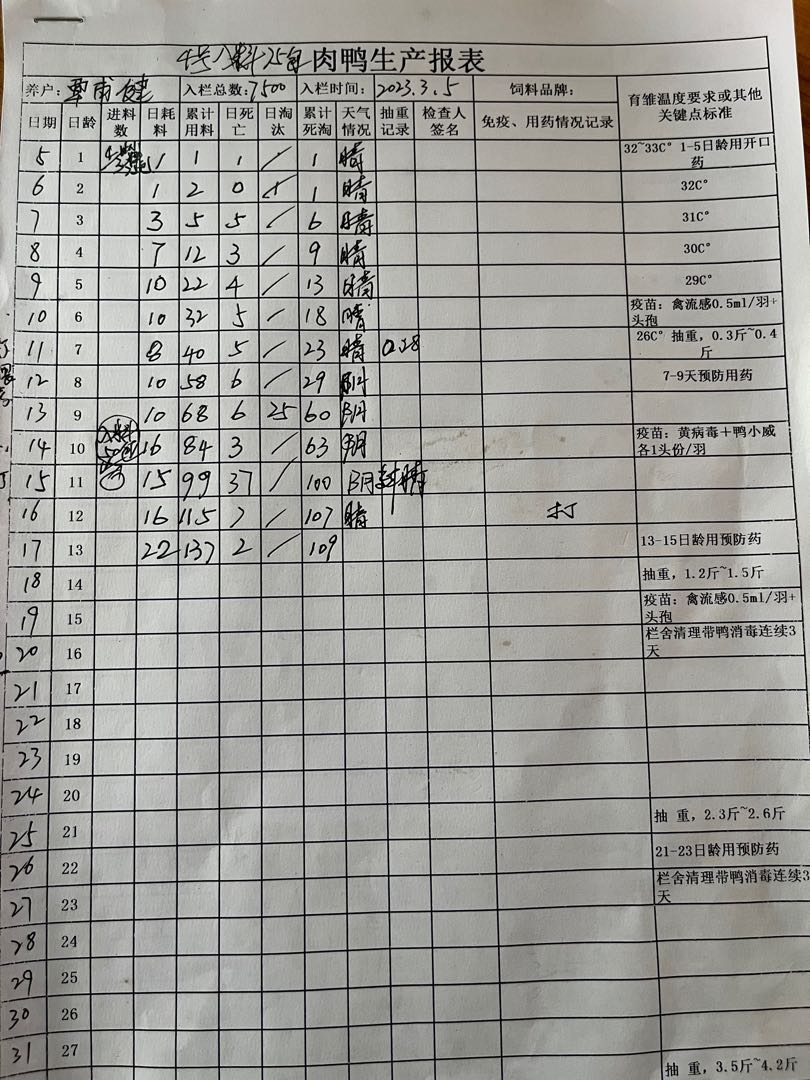 4号入料25包 肉鸭生产报表
养户: 覃甫健 入栏总数:7500 入栏时间: 2023.3.5 饲料品牌: 育雏温度要求或其他关键点标准
日期 日龄 进料数 日耗料 累计用料 日死亡 日淘汰 累计死淘 天气情况 抽重记录 检查人签名 免疫、用药情况记录
5 1 1 1 1 / 1 晴 32~33C° 1-5日龄用开口药
6 2 1 2 0 / 1 晴 32C°
7 3 3 5 5 / 6 晴 31C°
8 4 7 12 3 / 9 晴 30C°
9 5 10 22 4 / 13 晴 29C°
10 6 10 32 5 / 18 晴 疫苗: 禽流感0.5ml/羽+头孢
11 7 8 40 5 / 23 晴 0.38 26C° 抽重, 0.3斤~0.4斤
12 8 10 58 6 / 29 阴 7-9天预防用药
13 9 10 68 6 25 60 阴
14 10 16 84 3 / 63 阴 疫苗: 黄病毒+鸭小威各1头份/羽
15 11 15 99 37 / 100 阴转晴
16 12 16 115 7 / 107 晴 打
17 13 22 137 2 / 109 13-15日龄用预防药
18 14 抽重, 1.2斤~1.5斤
19 15 疫苗: 禽流感0.5ml/羽+头孢
20 16 栏舍清理带鸭消毒连续3天
21 17
22 18
23 19
24 20
25 21 抽 重, 2.3斤~2.6斤
26 22 21-23日龄用预防药
27 23 栏舍清理带鸭消毒连续3天
28 24
29 25
30 26
31 27
抽 重, 3.5斤~4.2斤